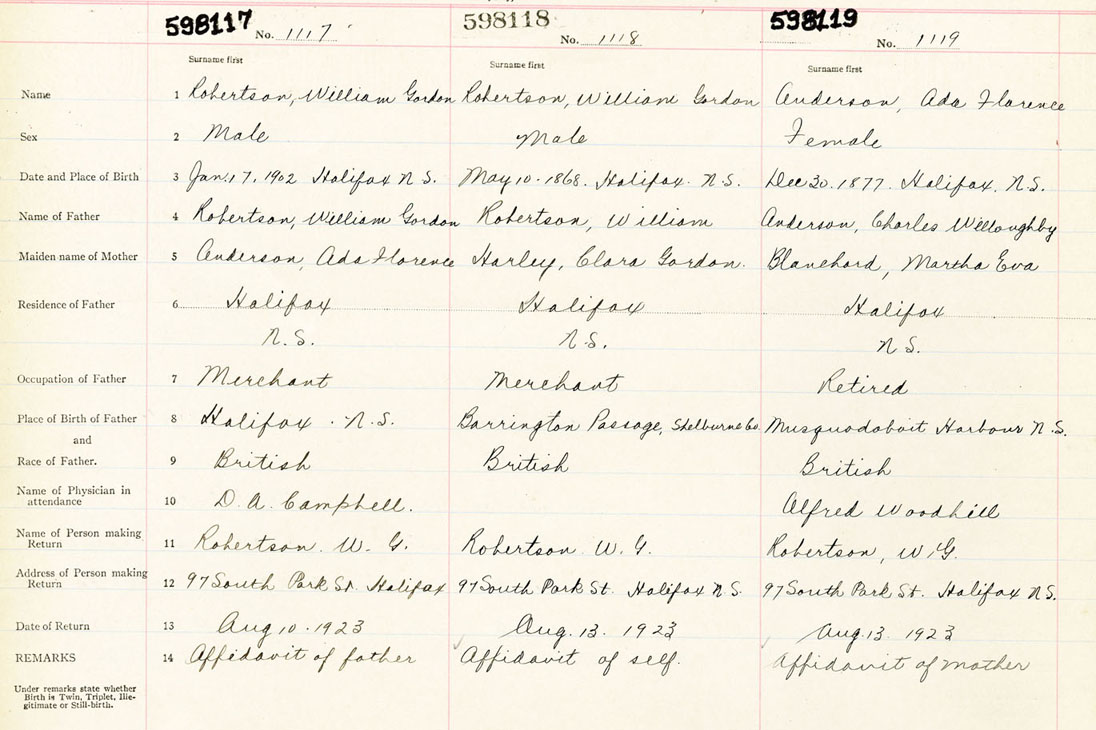 598117 No. 1117 598118 No. 1118 598119 No. 1119
Surname first Surname first Surname first
Name 1 Robertson, William Gordon Robertson, William Gordon Anderson, Ada Florence
Sex 2 Male Male Female
Date and Place of Birth 3 Jan. 17, 1902 Halifax N S. May 10. 1868. Halifax. N.S. Dec 30. 1877. Halifax. N.S.
Name of Father 4 Robertson, William Gordon Robertson, William Anderson, Charles Willoughby
Maiden name of Mother 5 Anderson, Ada Florence Harley, Clara Gordon. Blanchard, Martha Eva
Residence of Father 6 Halifax Halifax Halifax
N.S. N.S. N S.
Occupation of Father 7 Merchant Merchant Retired
Place of Birth of Father 8 Halifax . N.S. Barrington Passage, Shelburne Co. Musquodoboit Harbour N.S.
and
Race of Father. 9 British British British
Name of Physician in
attendance 10 D. A. Campbell. Alfred Woodhill
Name of Person making
Return 11 Robertson. W. G. Robertson W. G. Robertson, W.G.
Address of Person making
Return 12 97 South Park St. Halifax 97 South Park St. Halifax N S. 97 South Park St. Halifax N.S.
Date of Return 13 Aug 10. 1923 Aug. 13. 1923 Aug 13. 1923
REMARKS 14 Affidavit of father Affidavit of self. Affidavit of Mother
Under remarks state whether
Birth is Twin, Triplet, Ille-
gitimate or Still-birth.